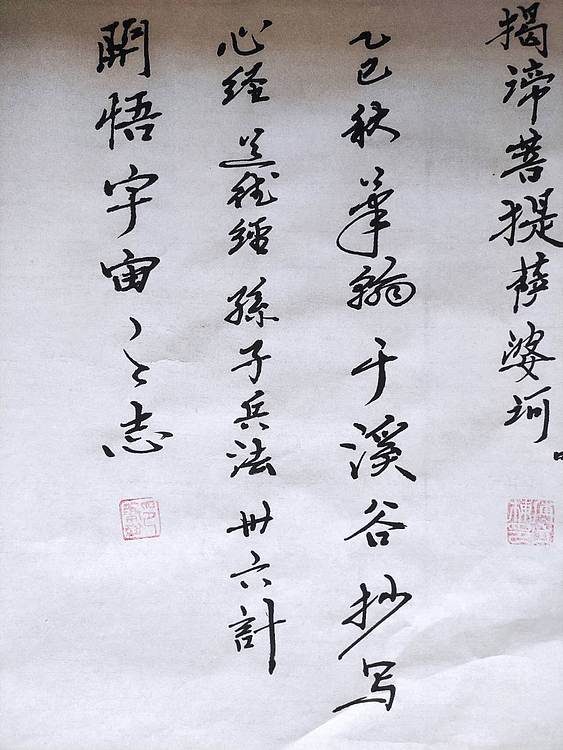 揭谛菩提萨婆诃
乙巳秋筆翰于溪谷抄写
心经道德經孫子兵法卅六計
開悟宇宙之志